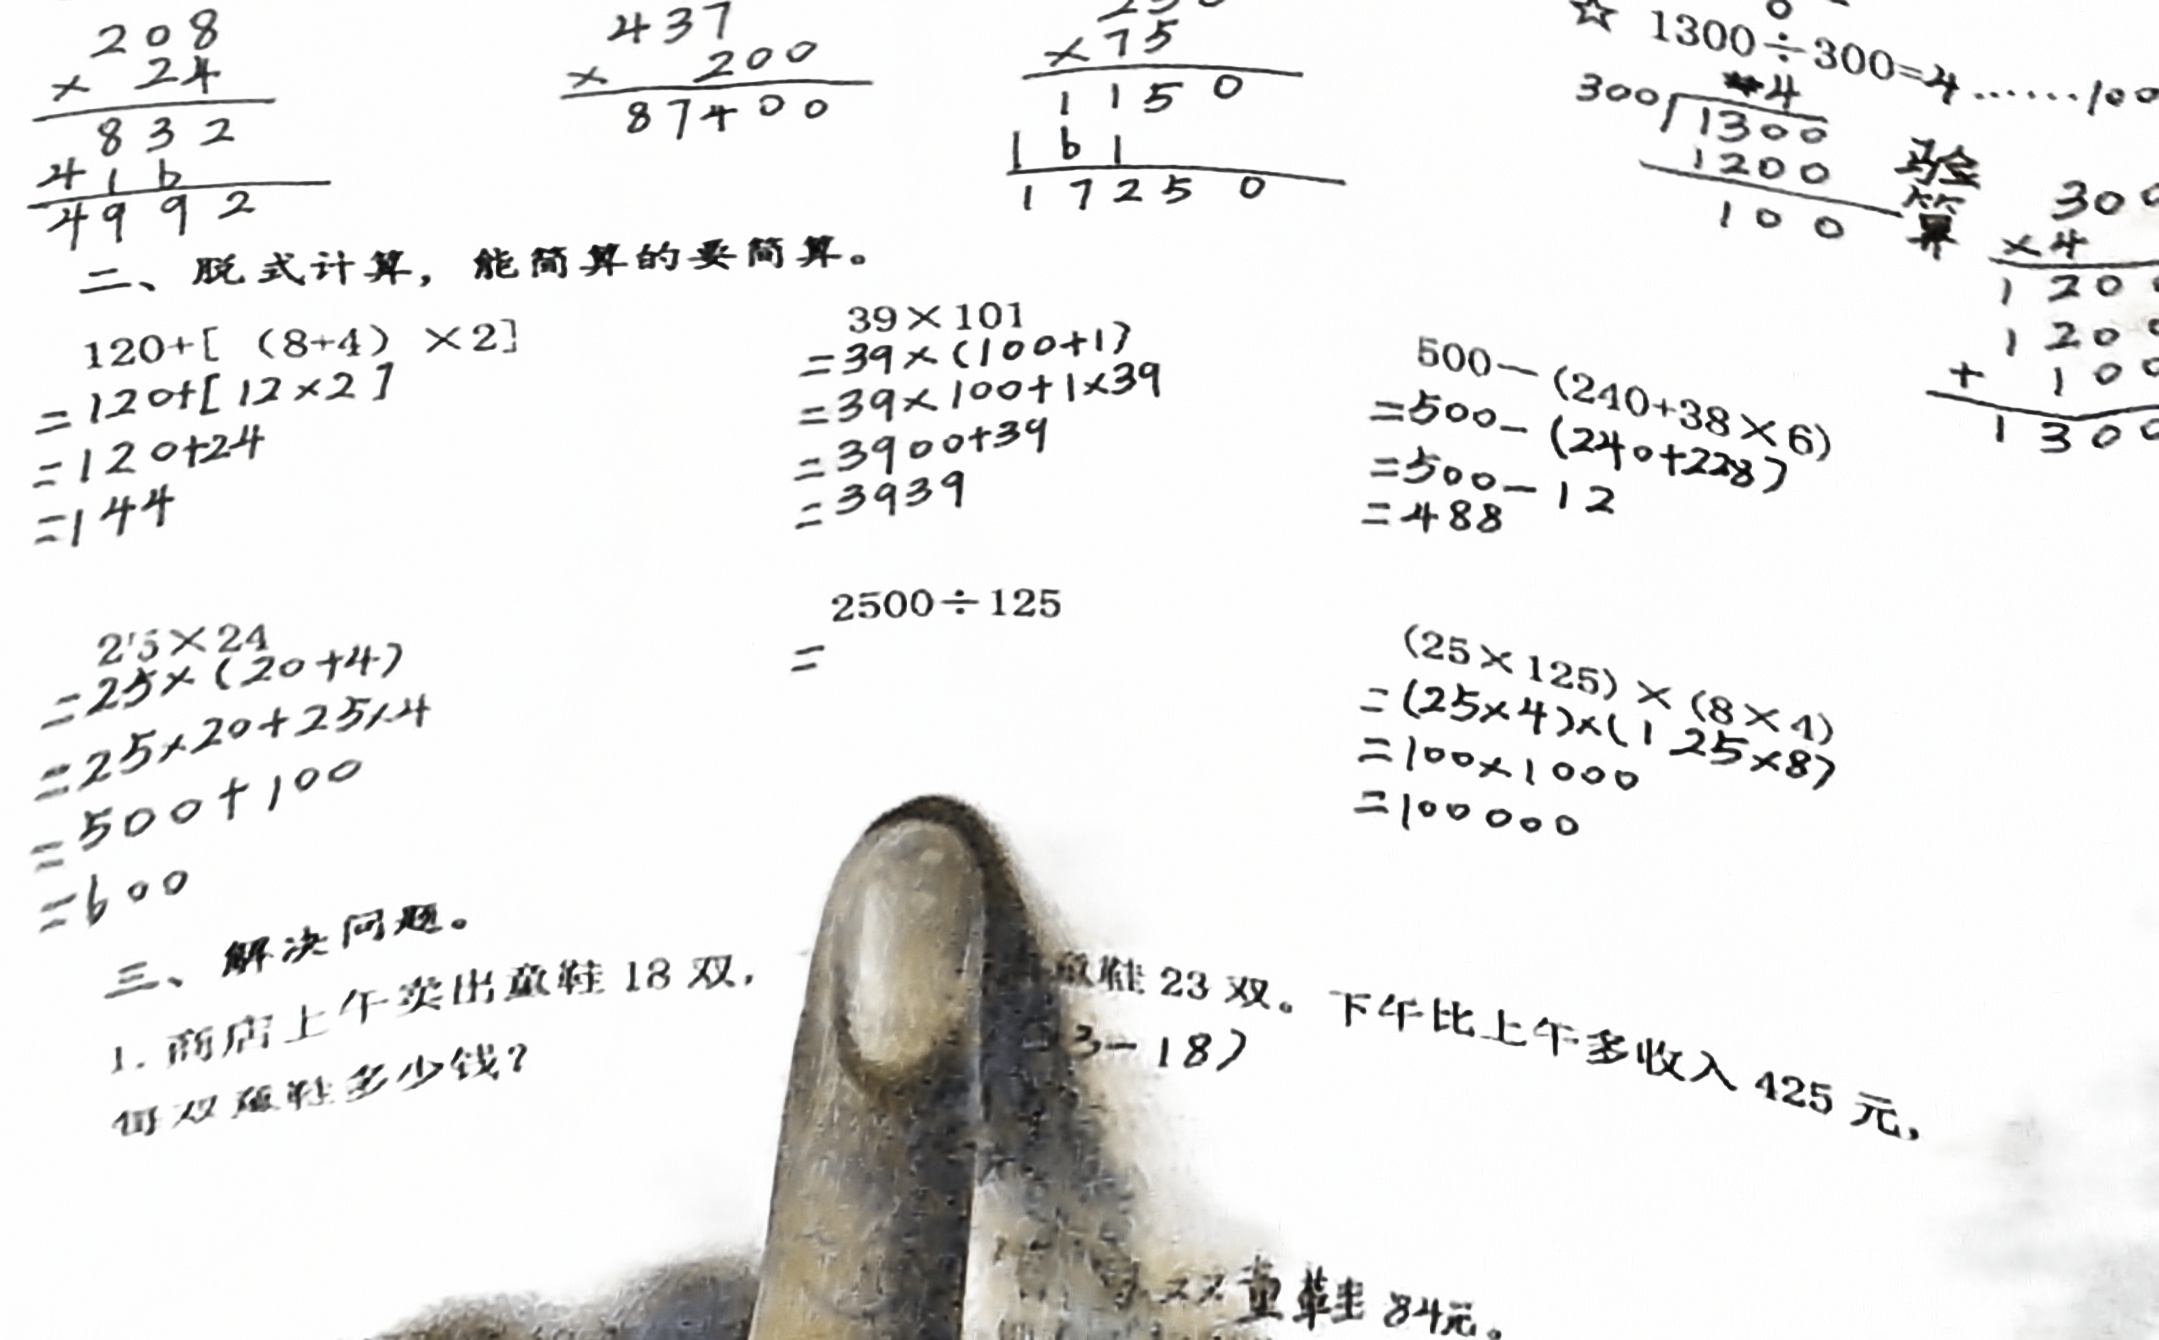 208
× 24
832
416
4992
437
× 200
87400
×75
1150
161
17250
☆ 1300÷300=4……100
4
300 1300
1200
100
验算
300
×4
1200
1200
+ 100
1300
二、脱式计算，能简算的要简算。
120+[（8+4）×2]
=120+[12×2]
=120+24
=144
39×101
=39×(100+1)
=39×100+1×39
=3900+39
=3939
500－(240+38×6)
=500-(240+228)
=500-12
=488
25×24
=25×(20+4)
=25×20+25×4
=500+100
=600
2500÷125
=
(25×125)×(8×4)
=(25×4)×(125×8)
=100×1000
=100000
三、解决问题。
1. 商店上午卖出童鞋 18 双， 童鞋 23 双。下午比上午多收入 425 元，
每双童鞋多少钱？
3-18)
双童鞋84元。